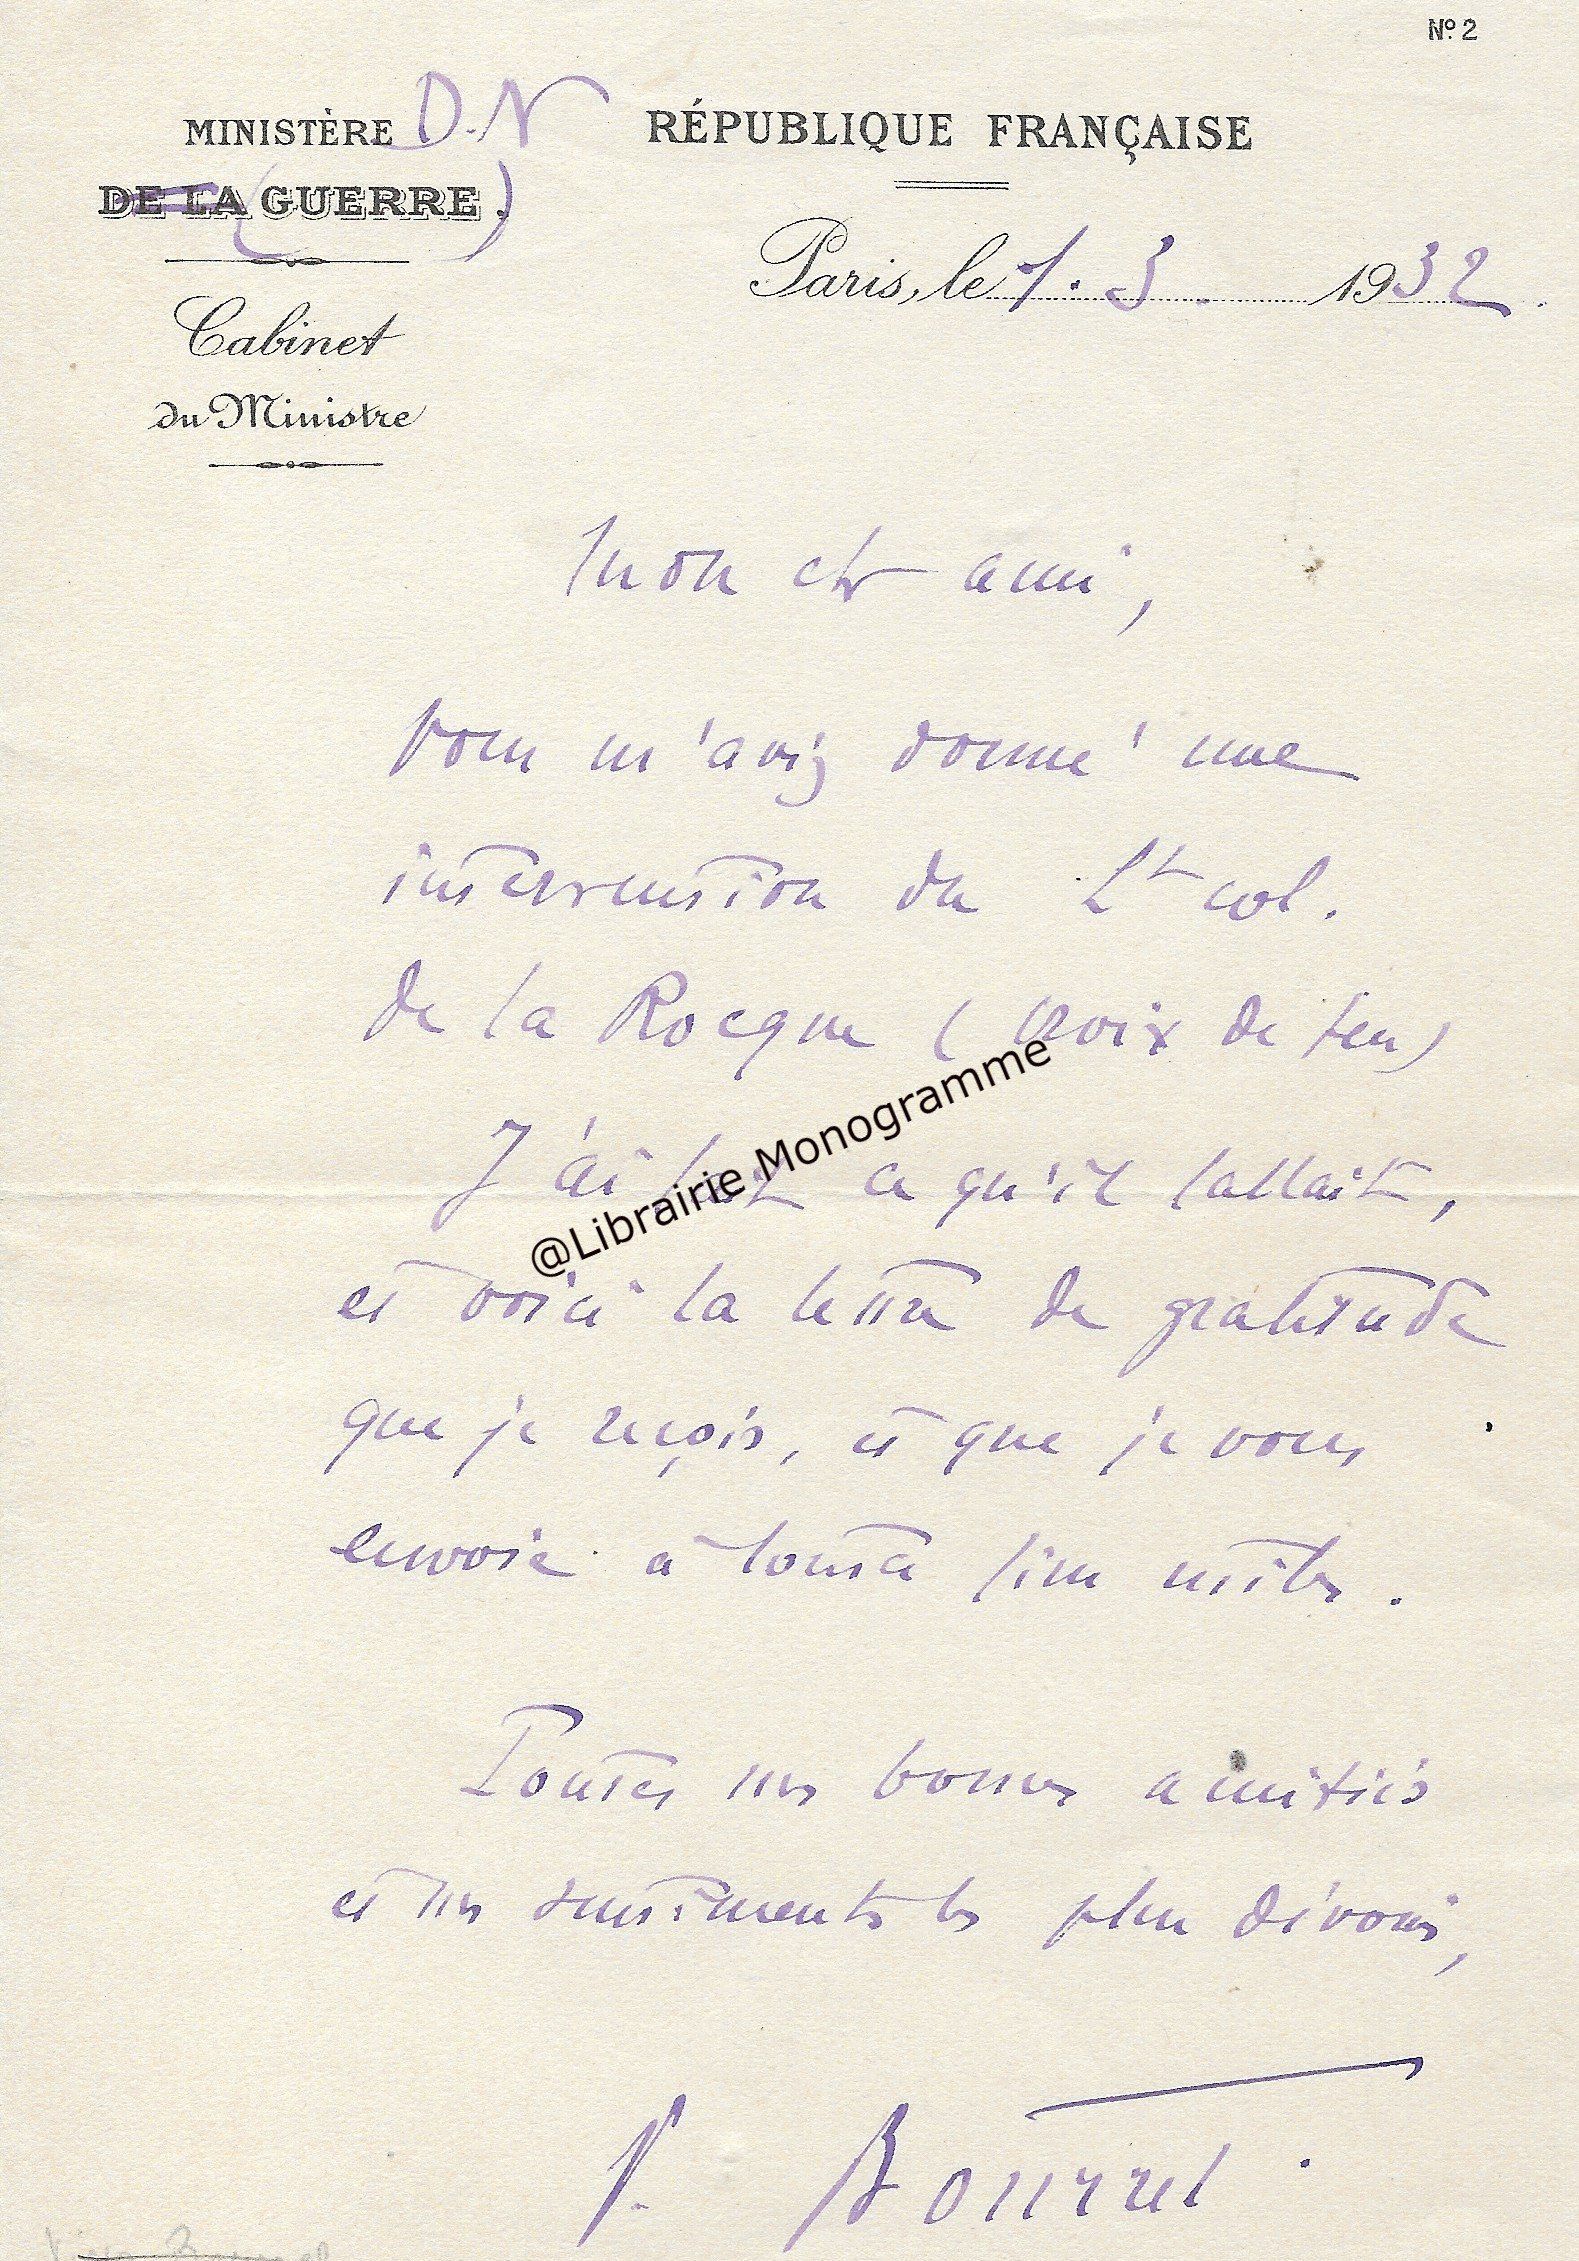 Nº 2
MINISTÈRE D.N
DE LA (GUERRE.)
RÉPUBLIQUE FRANÇAISE
Paris, le 1.3. 1932.
Cabinet
du Ministre
Mon chr ami,
vous m'aviez donné une
intervention du Lt col.
de la Rocque (Croix de feu)
J'ai fait ce qu'il fallait,
et voici la lettre de gratitude
que je reçois, et que je vous
envoie à toutes fins utiles.
Toutes mes bonnes amitiés
et mes sentiments les plus dévoués,
Bourret.
@Librairie Monogramme